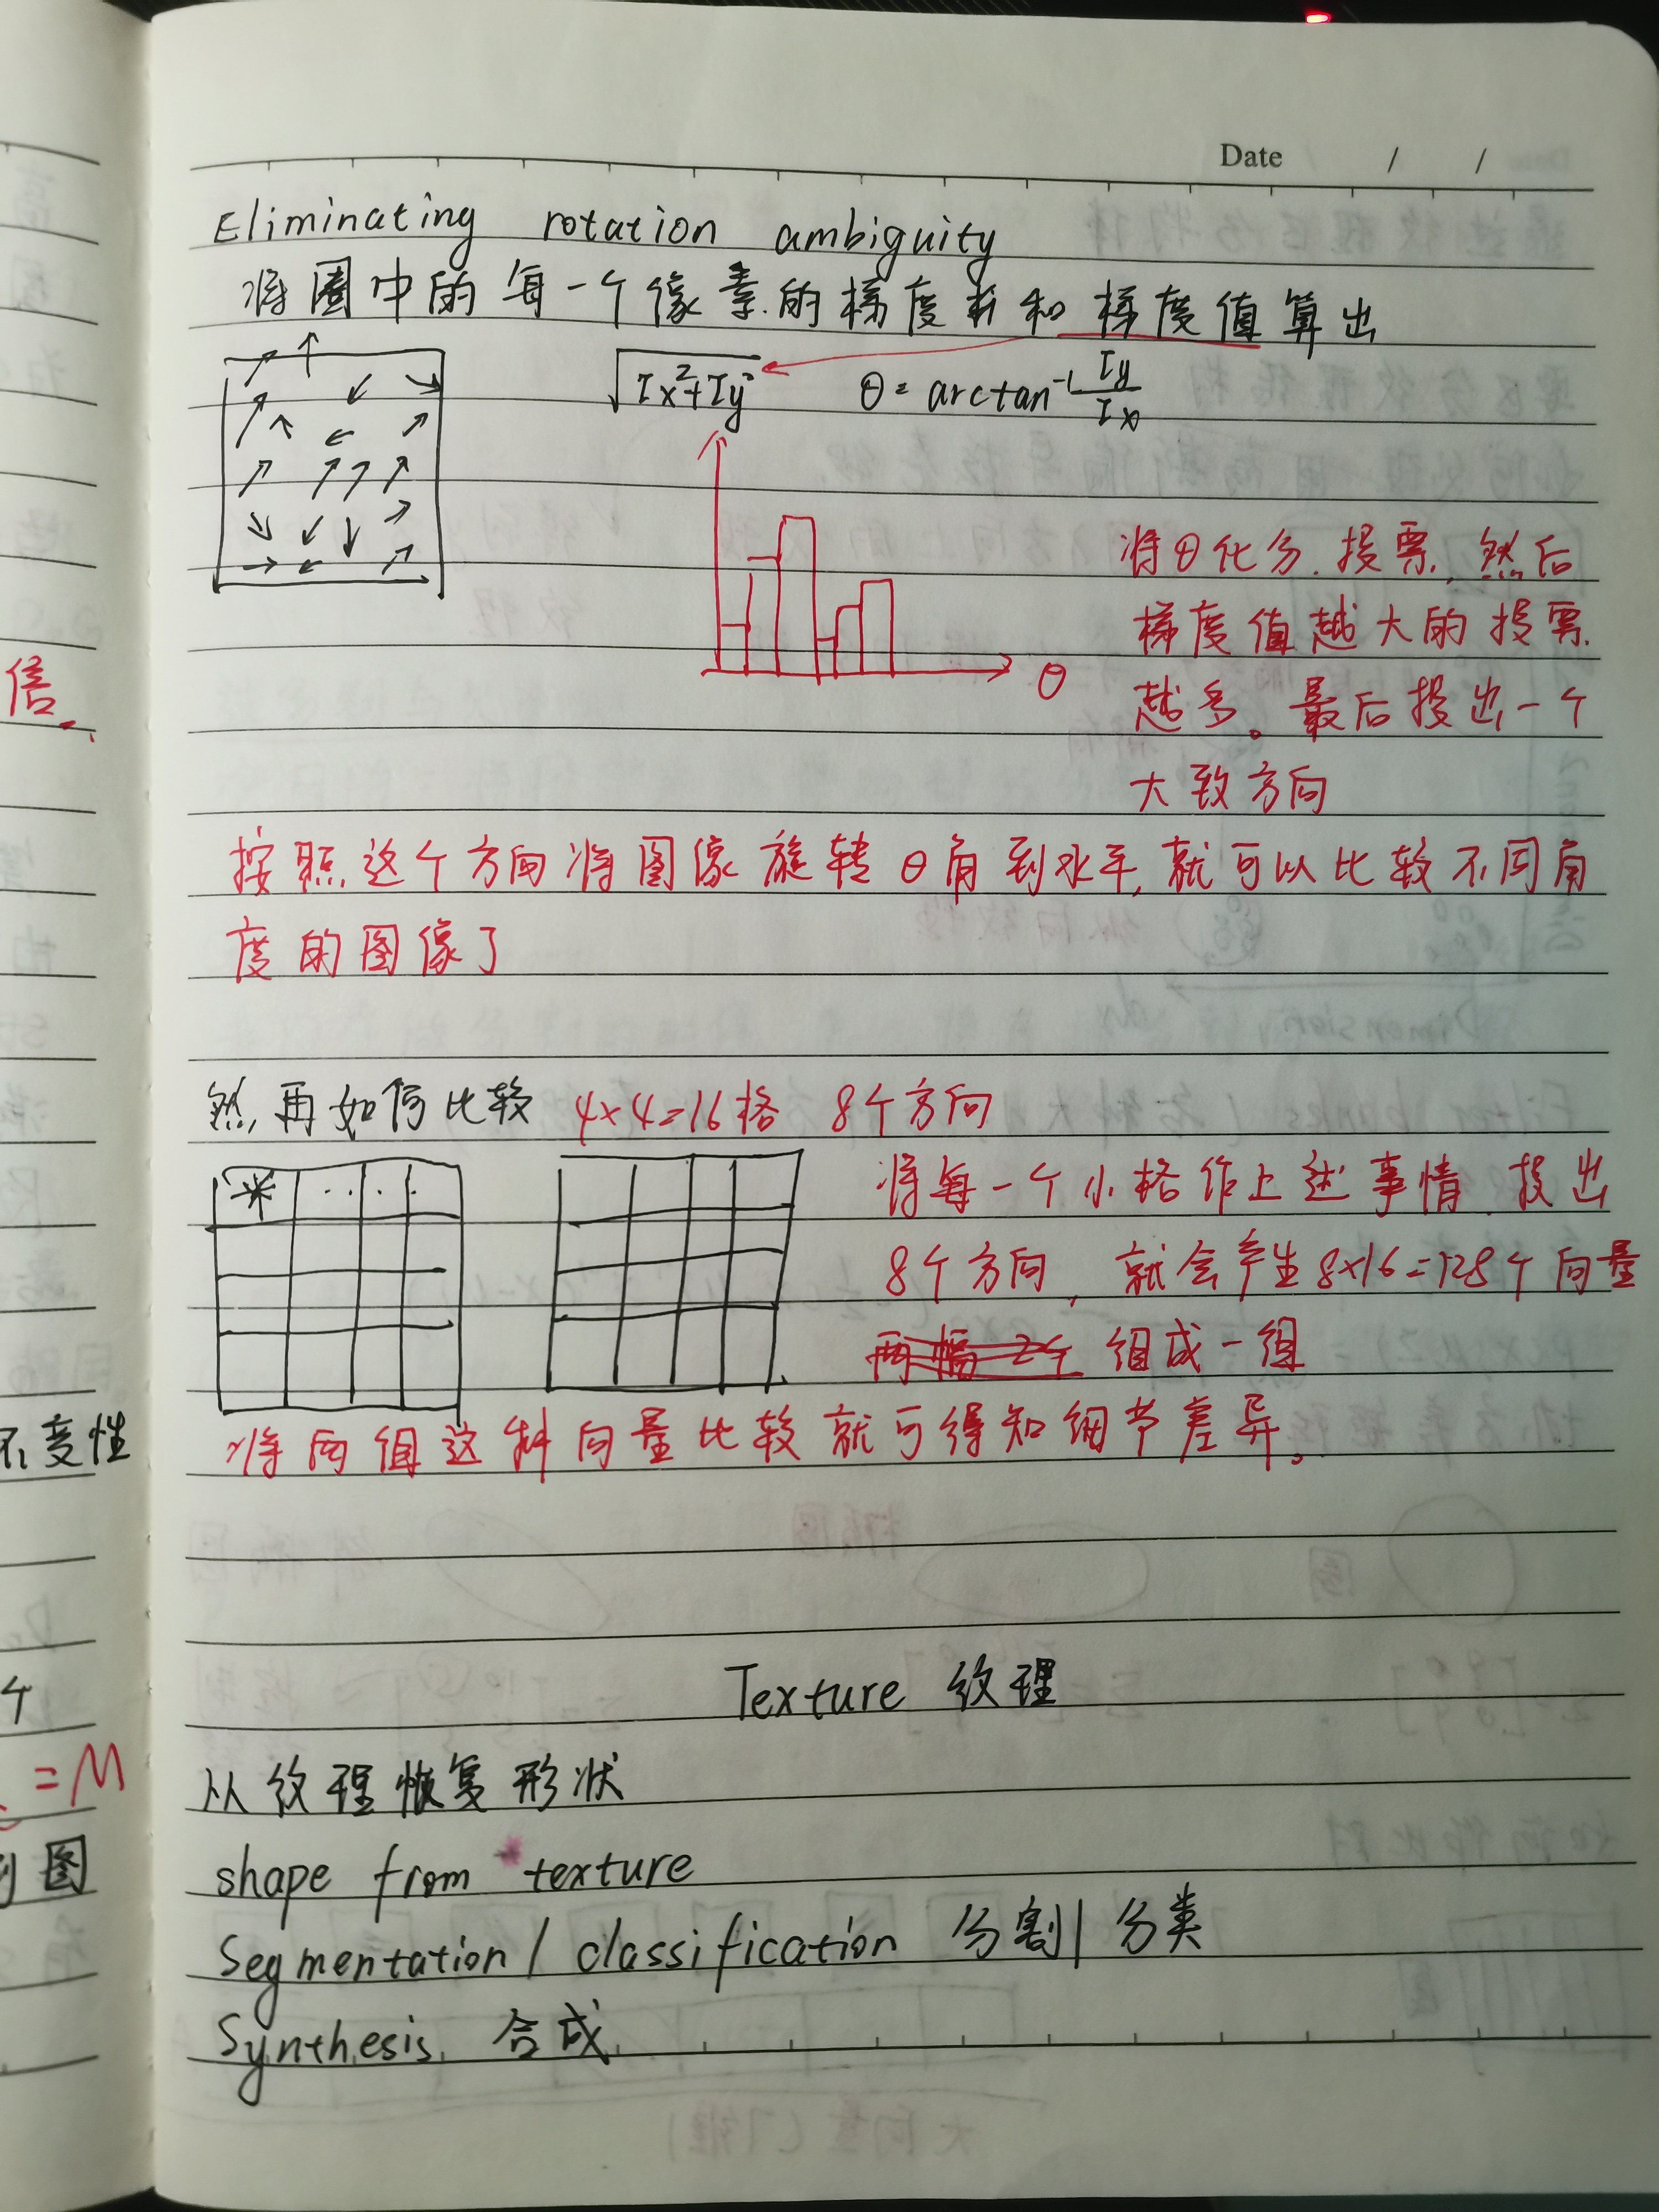 Date / /
Eliminating rotation ambiguity
将图中的每一个像素的梯度 和梯度值算出
√Ix²+Iy² θ= arctan⁻¹ Iy/Ix
将θ化分.投票,然后
梯度值越大的投票
越多。最后投出一个
大致方向
θ
按照这个方向将图像旋转θ角到水平,就可以比较不同角
度的图像了
然,再如何比较 4×4=16格 8个方向
将每一个小格作上述事情,投出
8个方向,就会产生8×16=128个向量
组成一组
将两组这种向量比较就可得知细节差异。
Texture 纹理
从纹理恢复形状
shape from texture
Segmentation/ classification 分割| 分类
Synthesis. 合成
信.
不变性
个
=M
图